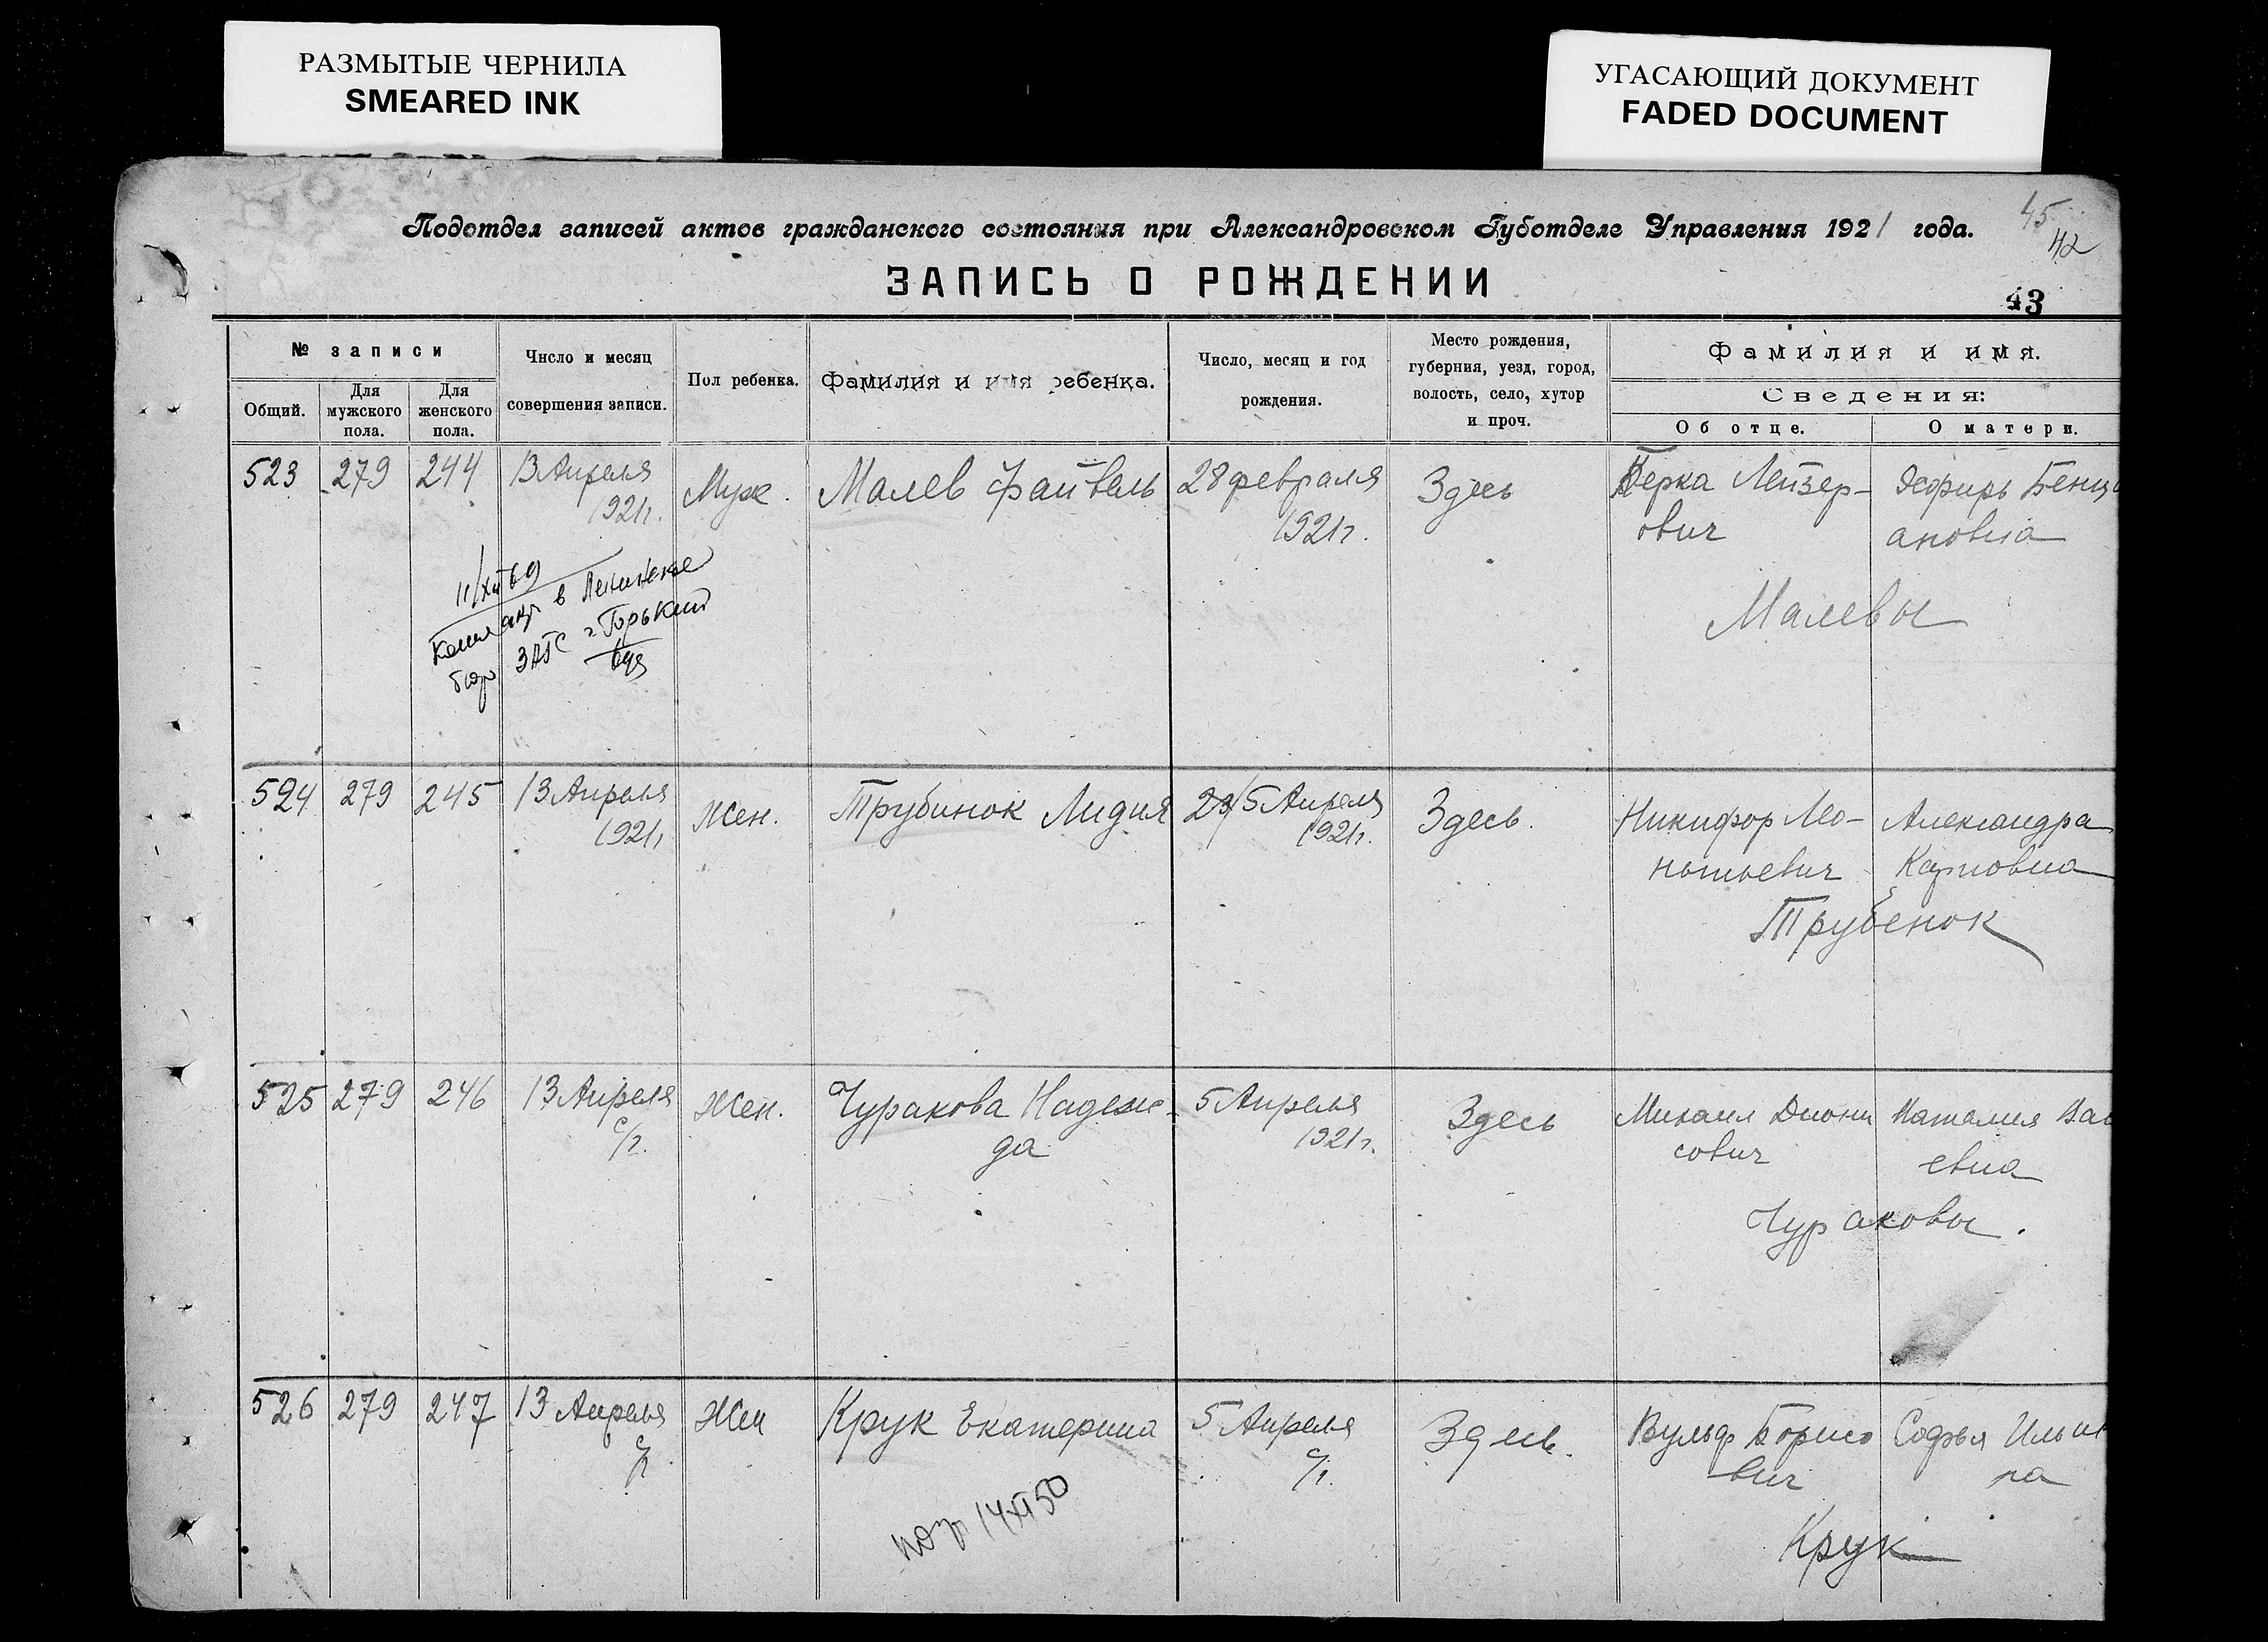 РАЗМЫТЫЕ ЧЕРНИЛА
SMEARED INK
УГАСАЮЩИЙ ДОКУМЕНТ
FADED DOCUMENT
45
42
Подотдел записей актов гражданского состояния при Александровском Губотделе Управления 1921 года.
ЗАПИСЬ О РОЖДЕНИИ
43
№ записи
Общий.
Для мужского пола.
Для женского пола.
Число и месяц совершения записи.
Пол ребенка.
Фамилия и имя ребенка.
Число, месяц и год рождения.
Место рождения, губерния, уезд, город, волость, село, хутор и проч.
Фамилия и имя.
Сведения:
Об отце.
О матери.
523 279 244 13 Апреля Муж. Малев Файвель 28 февраля Здесь Берка Лейзер-
1921г. 1921г. ович ановна
Малевы
11/XII 69
в Ленинское
ЗАГС г. Горький
524 279 245 13 Апреля Жен. Трубинок Лидия 23/5 Апреля Здесь. Никифор Лео- Александра
1921г 1921г. нтьевич Карповна
Трубенок
525 279 246 13 Апреля Жен. Чуракова Надеж- 5 Апреля Здесь Михаил Диони Наталия Вас
с/г. да 1921г. сович евна
Чураковы.
526 279 247 13 Апреля Жен Крук Екатерина 5 Апреля Здесь. Вульф Борисо Софья Ильин
с/г. с/г. вич на
Крук
14 XI 50